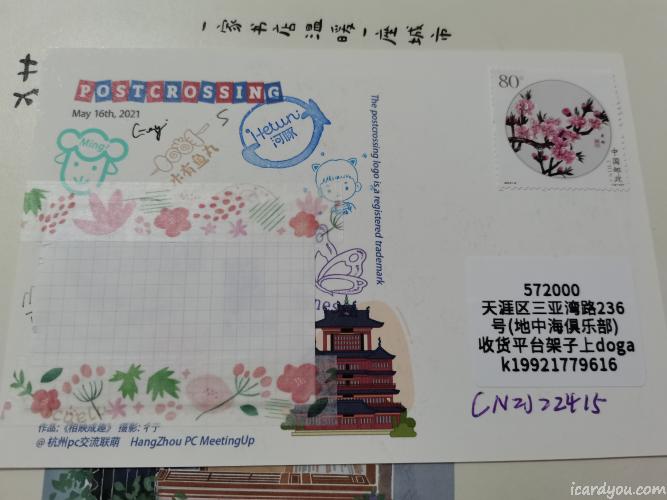 一家书店温暖一座城市
POSTCROSSING
May 16th, 2021
Ming!
木有鱼丸
Hetuni
The postcrossing logo is a registered trademark
80分
中国邮政
572000
天涯区三亚湾路236
号(地中海俱乐部)
收货平台架子上doga
k19921779616
作品:《相映成趣》 摄影: 彳亍
@ 杭州pc交流联萌 HangZhou PC MeetingUp
icardyou.com